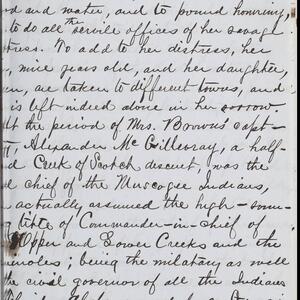 d and water, and to pound hominy,
to do all the servile offices of her savage
tress. To add to her distress, her
, nine years old, and her daughter,
en, are taken to different towns, and
is left indeed alone in her sorrow.
At the period of Mrs. Brown's capt-
Alexander McGillivray, a half-
d Creek of Scotch descent, was the
d chief of the Muscogee Indians,
actually assumed the high-soun-
title of Commander-in-chief of
Upper and Lower Creeks and the
inoles; being the military as well
the civil governor of all the Indians